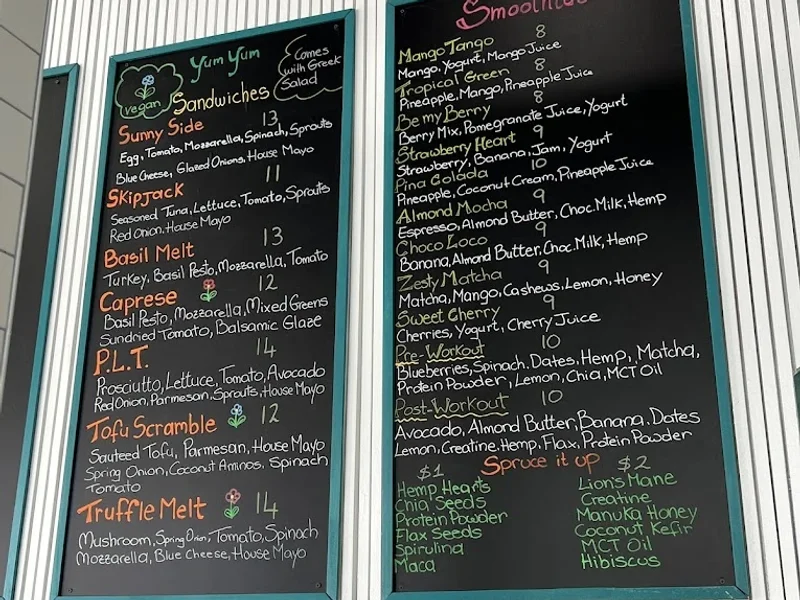 Yum Yum
Comes
with Greek
Salad
vegan
Sandwiches
Sunny Side 13
Egg, Tomato, Mozzarella, Spinach, Sprouts
Blue Cheese, Glazed Onions, House Mayo
Skipjack 11
Seasoned Tuna, Lettuce, Tomato, Sprouts
Red Onion, House Mayo
Basil Melt 13
Turkey, Basil Pesto, Mozzarella, Tomato
Caprese 12
Basil Pesto, Mozzarella, Mixed Greens
Sundried Tomato, Balsamic Glaze
P.L.T. 14
Prosciutto, Lettuce, Tomato, Avocado
Red Onion, Parmesan, Sprouts, House Mayo
Tofu Scramble 12
Sauteed Tofu, Parmesan, House Mayo
Spring Onion, Coconut Aminos, Spinach
Tomato
Truffle Melt 14
Mushroom, Spring Onion, Tomato, Spinach
Mozzarella, Blue Cheese, House Mayo
Smoothies
Mango Tango 8
Mango, Yogurt, Mango Juice
Tropical Green 8
Pineapple, Mango, Pineapple Juice
Be my Berry 8
Berry Mix, Pomegranate Juice, Yogurt
Strawberry Heart 9
Strawberry, Banana, Jam, Yogurt
Pina Colada 10
Pineapple, Coconut Cream, Pineapple Juice
Almond Mocha 9
Espresso, Almond Butter, Choc. Milk, Hemp
Choco Loco 9
Banana, Almond Butter, Choc. Milk, Hemp
Zesty Matcha 9
Matcha, Mango, Cashews, Lemon, Honey
Sweet Cherry 9
Cherries, Yogurt, Cherry Juice
Pre-Workout 10
Blueberries, Spinach, Dates, Hemp, Matcha,
Protein Powder, Lemon, Chia, MCT Oil
Post-Workout 10
Avocado, Almond Butter, Banana, Dates
Lemon, Creatine, Hemp, Flax, Protein Powder
Spruce it up
$1
Hemp Hearts
Chia Seeds
Protein Powder
Flax Seeds
Spirulina
Maca
$2
Lion's Mane
Creatine
Manuka Honey
Coconut Kefir
MCT Oil
Hibiscus